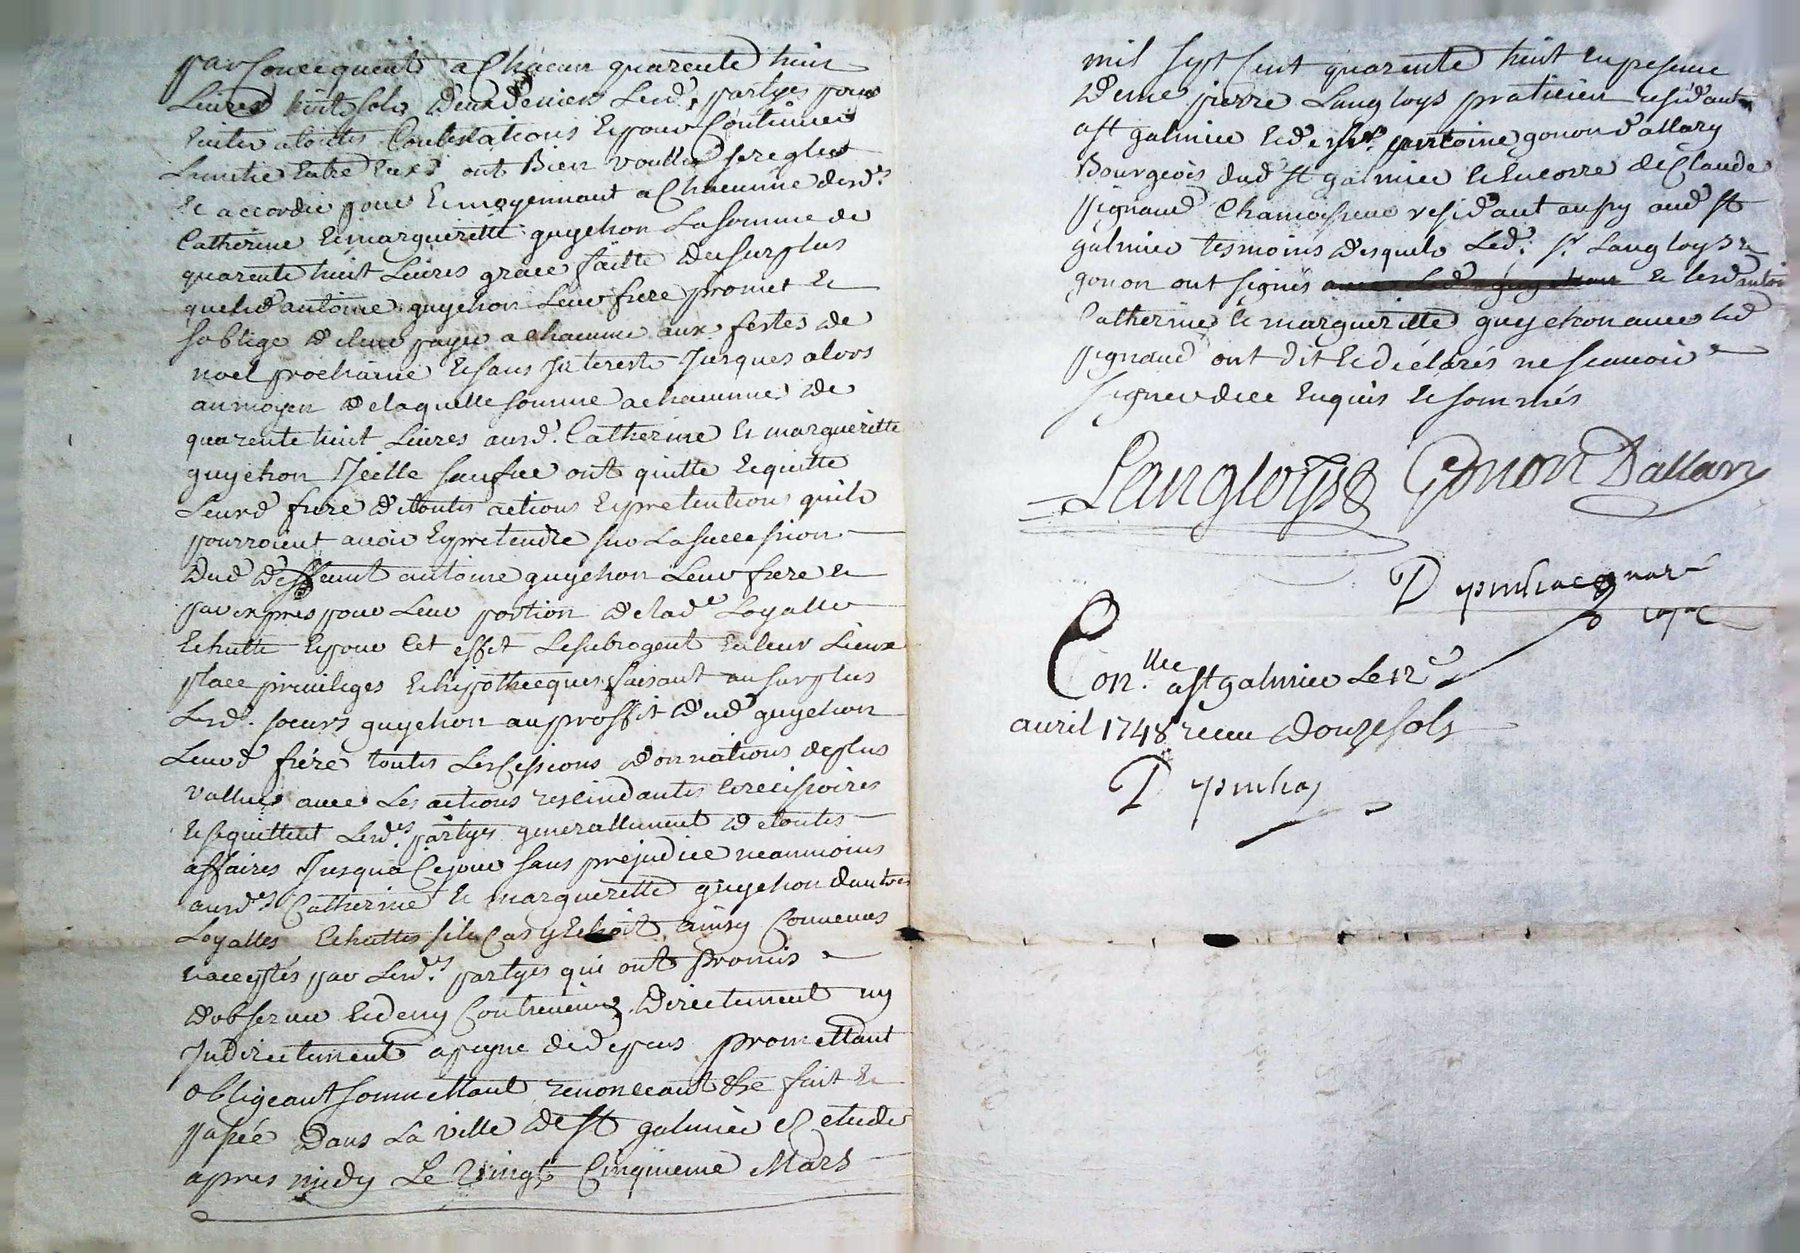 par Consequent a Chacun quarente huit
Livres huit sols Deux Deniers Lesd. partyes pour
Eviter atoutes Contestations Et pour Continuer
Lamitie Entre Eux ont Bien voullu se regler
Et accorder pour Et moyennant a Chacunne desd.es
Catherine Et margueritte guyehon La somme de
quarente huit Livres grace faitte Du surplus
queled antoine guyehon Leur frere promet Et
soblige De leur payer a chacunne aux festes de
noel prochaine Et sans Interests Jusques alors
au moyen De laquelle somme a chacunne de
quarente huit Livres ausd. Catherine Et margueritte
guyehon Icelle ont quitte Et quitte
Leurd frere De toutes actions Et pretentions quils
pourroient avoir Et pretendre sur La succession
Dud Deffunt antoine guyehon Leur frere Et
par expres pour Leur portion De lad.e Loyalle
Echutte Et pour Cet effet Le subrogent En leur Lieux
place privileges Et hipothecques faisant au surplus
Lesd. soeurs guyehon au proffit Dud guyehon
Leurd frere toutes Les Cessions Donnations de plus
vallues avec Les actions rescindantes Et recisoires
Et se quittent Lesd.es partyes generallement De toutes
affaires Jusqua Ce jour sans prejudice neanmoins
ausd.es Catherine Et marguerette guyehon Dautres
Loyalles Echuttes sile Cas y Echoit ainsy Convenus
Et acceptés par Lesd.es partyes qui ont promis
Dobserver Et deny Contrevenir Directement ny
Indirectement a peyne de depens promettant
obligeant soumettant renonceant &e fait Et
passée Dans La ville De st galmier & etude
apres midy Le Vingt Cinquieme Mars
mil sept Cent quarente huit En presence
De me pierre Langloys praticien residant
a st galmier Et de sr. antoine gonon d'allary
Bourgeois dud st galmier Et Encorre de Claude
pignaud Chamoiseur residant aussy aud st
galmier tesmoins desquels Led. sr. Langloys Et
gonon ont signés avec Led guyehon Et Lesd antoi
Catherine Et margueritte guyehon avec led
pignaud ont dit Et déclarés ne scavoir
signer de ce Enquis Et sommés
Langloys Gonon Dallary
D
Con.lle a st galmier Le 12e
avril 1748 receu Douze sols
D